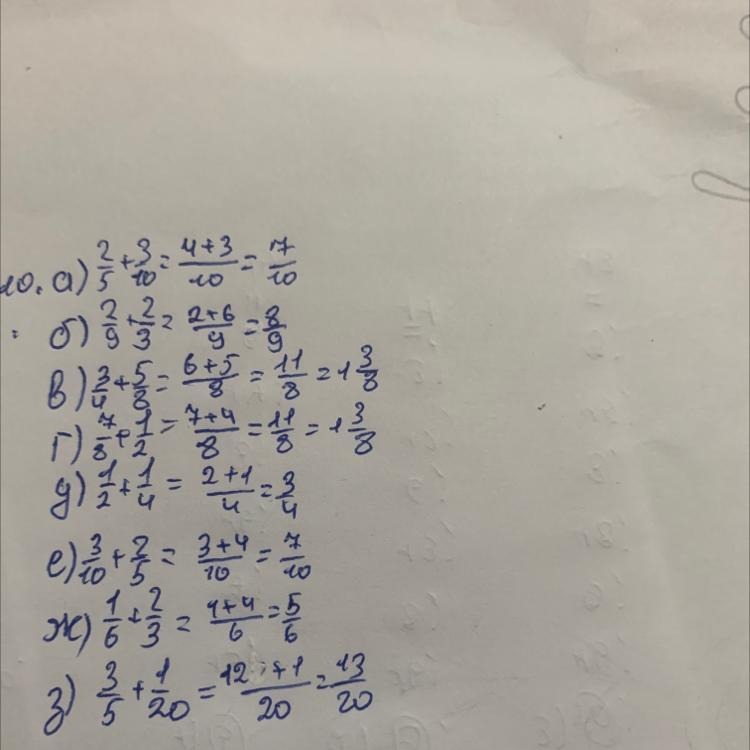 10. а) 2/5 + 3/10 = (4+3)/10 = 7/10
б) 2/9 + 2/3 = (2+6)/9 = 8/9
в) 3/4 + 5/8 = (6+5)/8 = 11/8 = 1 3/8
г) 7/8 + 1/2 = (7+4)/8 = 11/8 = 1 3/8
д) 1/2 + 1/4 = (2+1)/4 = 3/4
е) 3/10 + 2/5 = (3+4)/10 = 7/10
ж) 1/6 + 2/3 = (1+4)/6 = 5/6
з) 3/5 + 1/20 = (12+1)/20 = 13/20